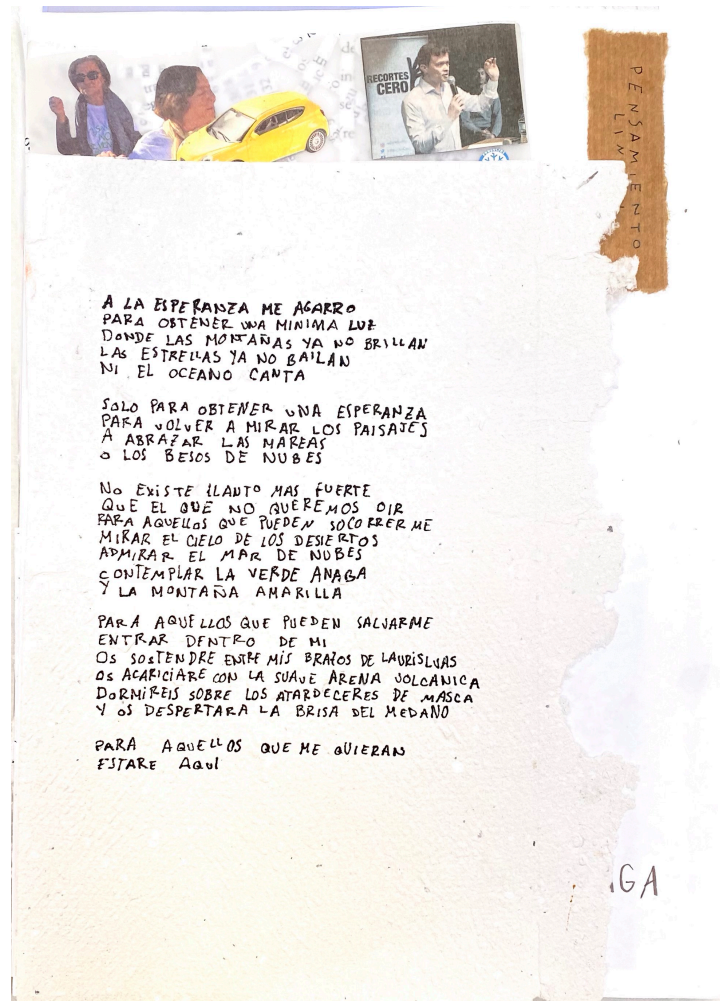 RECORTES
CERO
PENSAMIENTO
A LA ESPERANZA ME AGARRO
PARA OBTENER UNA MINIMA LUZ
DONDE LAS MONTAÑAS YA NO BRILLAN
LAS ESTRELLAS YA NO BAILAN
NI EL OCEANO CANTA
SOLO PARA OBTENER UNA ESPERANZA
PARA VOLVER A MIRAR LOS PAISAJES
A ABRAZAR LAS MAREAS
O LOS BESOS DE NUBES
NO EXISTE LLANTO MAS FUERTE
QUE EL QUE NO QUEREMOS OIR
PARA AQUELLOS QUE PUEDEN SOCORRERME
MIRAR EL CIELO DE LOS DESIERTOS
ADMIRAR EL MAR DE NUBES
CONTEMPLAR LA VERDE ANAGA
Y LA MONTAÑA AMARILLA
PARA AQUELLOS QUE PUEDEN SALVARME
ENTRAR DENTRO DE MI
OS SOSTENDRE ENTRE MIS BRAZOS DE LAURISLVAS
OS ACARICIARE CON LA SUAVE ARENA VOLCANICA
DORMIREIS SOBRE LOS ATARDECERES DE MASCA
Y OS DESPERTARA LA BRISA DEL MEDANO
PARA AQUELLOS QUE ME QUIERAN
ESTARE AQUÍ
GA